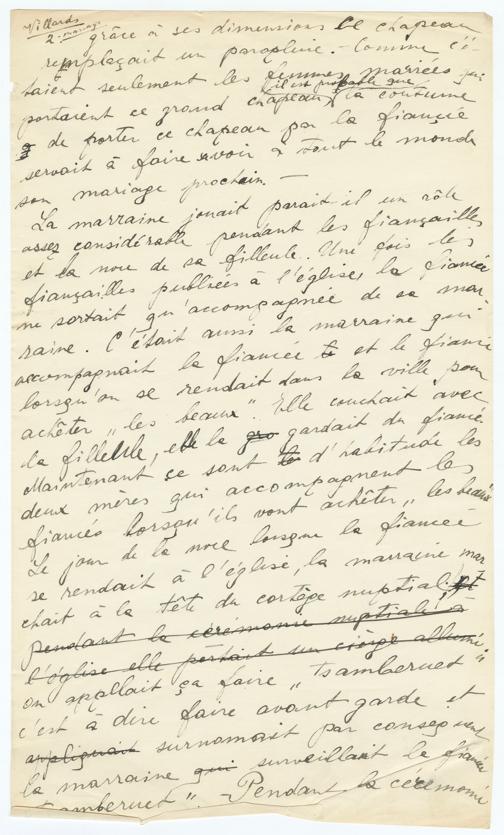 Villards
2 - mariage
grâce à ses dimensions le chapeau
remplaçait un parapluie. - Comme c'é-
taient seulement les femmes mariées qui
(il est probable que
portaient ce grand chapeau) la coutume
de porter ce chapeau par la fiancée
servait à faire savoir à tout le monde
son mariage prochain. —
La marraine jouait parait il un rôle
assez considérable pendant les fiançailles
et la noce de sa filleule. Une fois les
fiançailles publiées à l'église, la fiancée
ne sortait qu'accompagnée de sa mar-
raine. C'était aussi la marraine qui
accompagnait la fiancée et et le fiancé
lorsqu'on se rendait dans la ville pour
achêter „les beaux". Elle couchait avec
la filleule, elle la gro gardait du fiancé.
Maintenant ce sont les d'habitude les
deux mères qui accompagnent les
fiancés lorsqu'ils vont achêter „les beaux"
Le jour de la noce lorsque la fiancée
se rendait à l'église, la marraine mar
chait à la tête du cortège nuptial. et
pendant la cérémonie nuptiale à
l'église elle portait un cièrge allumé
on appllait ça faire „tsamberuet"
c'est à dire faire avant garde et
surnomait par conséquent
la marraine qui surveillait le fiancé
„tsamberuet". - Pendant la cérémonie